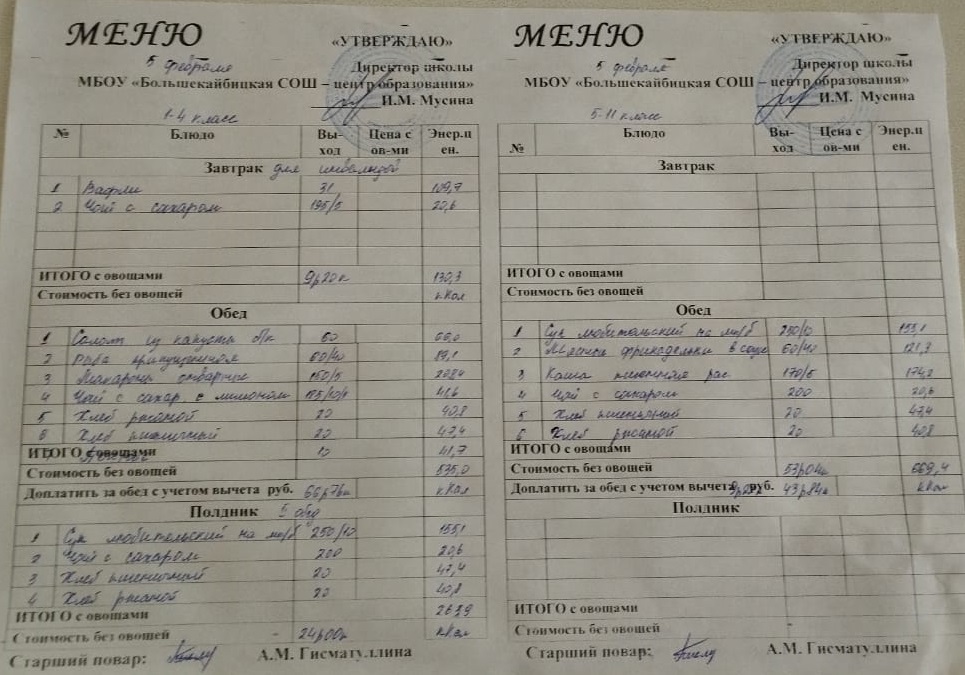 МЕНЮ
«УТВЕРЖДАЮ»
5 февраля
Директор школы
МБОУ «Большекайбицкая СОШ – центр образования»
И.М. Мусина
1-4 класс
№ Блюдо Вы-ход Цена с ов-ми Энер.ц ен.
Завтрак для инвалидов
1 Вафли 31 109,7
2 Чай с сахаром 195/5 20,6
ИТОГО с овощами 9р20к 130,3
Стоимость без овощей кКал
Обед
1 Салат из капусты б/к 60
2 Рыба припущенная
3 Макароны отварные 150/5
4 Чай с сахар. с лимоном 41,6
5 Хлеб ржаной 20 40,8
6 Хлеб пшеничный 20 47,4
ИТОГО с овощами 10 41,7
Стоимость без овощей 535,0
Доплатить за обед с учетом вычета руб. 66р76к кКал
Полдник обед
1 Суп любительский на м/б 250/10 155,1
2 Чай с сахаром 200 20,6
3 Хлеб пшеничный 20 47,4
4 Хлеб ржаной 20 40,8
ИТОГО с овощами 263,9
Стоимость без овощей - 24р00к кКал
Старший повар: А.М. Гисматуллина
МЕНЮ
«УТВЕРЖДАЮ»
5 февраля
Директор школы
МБОУ «Большекайбицкая СОШ – центр образования»
И.М. Мусина
5-11 класс
№ Блюдо Вы-ход Цена с ов-ми Энер.ц ен.
Завтрак
ИТОГО с овощами
Стоимость без овощей
Обед
1 Суп любительский на м/б 250/10 155,1
2 фрикадельки в соусе 60/40 121,3
3 Каша пшенная рас. 170/5
4 Чай с сахаром 200 20,6
5 Хлеб пшеничный 20 47,4
6 Хлеб ржаной 20 40,8
ИТОГО с овощами
Стоимость без овощей 53р04к 669,4
Доплатить за обед с учетом вычета руб. 43р84к кКал
Полдник
ИТОГО с овощами
Стоимость без овощей -
Старший повар: А.М. Гисматуллина